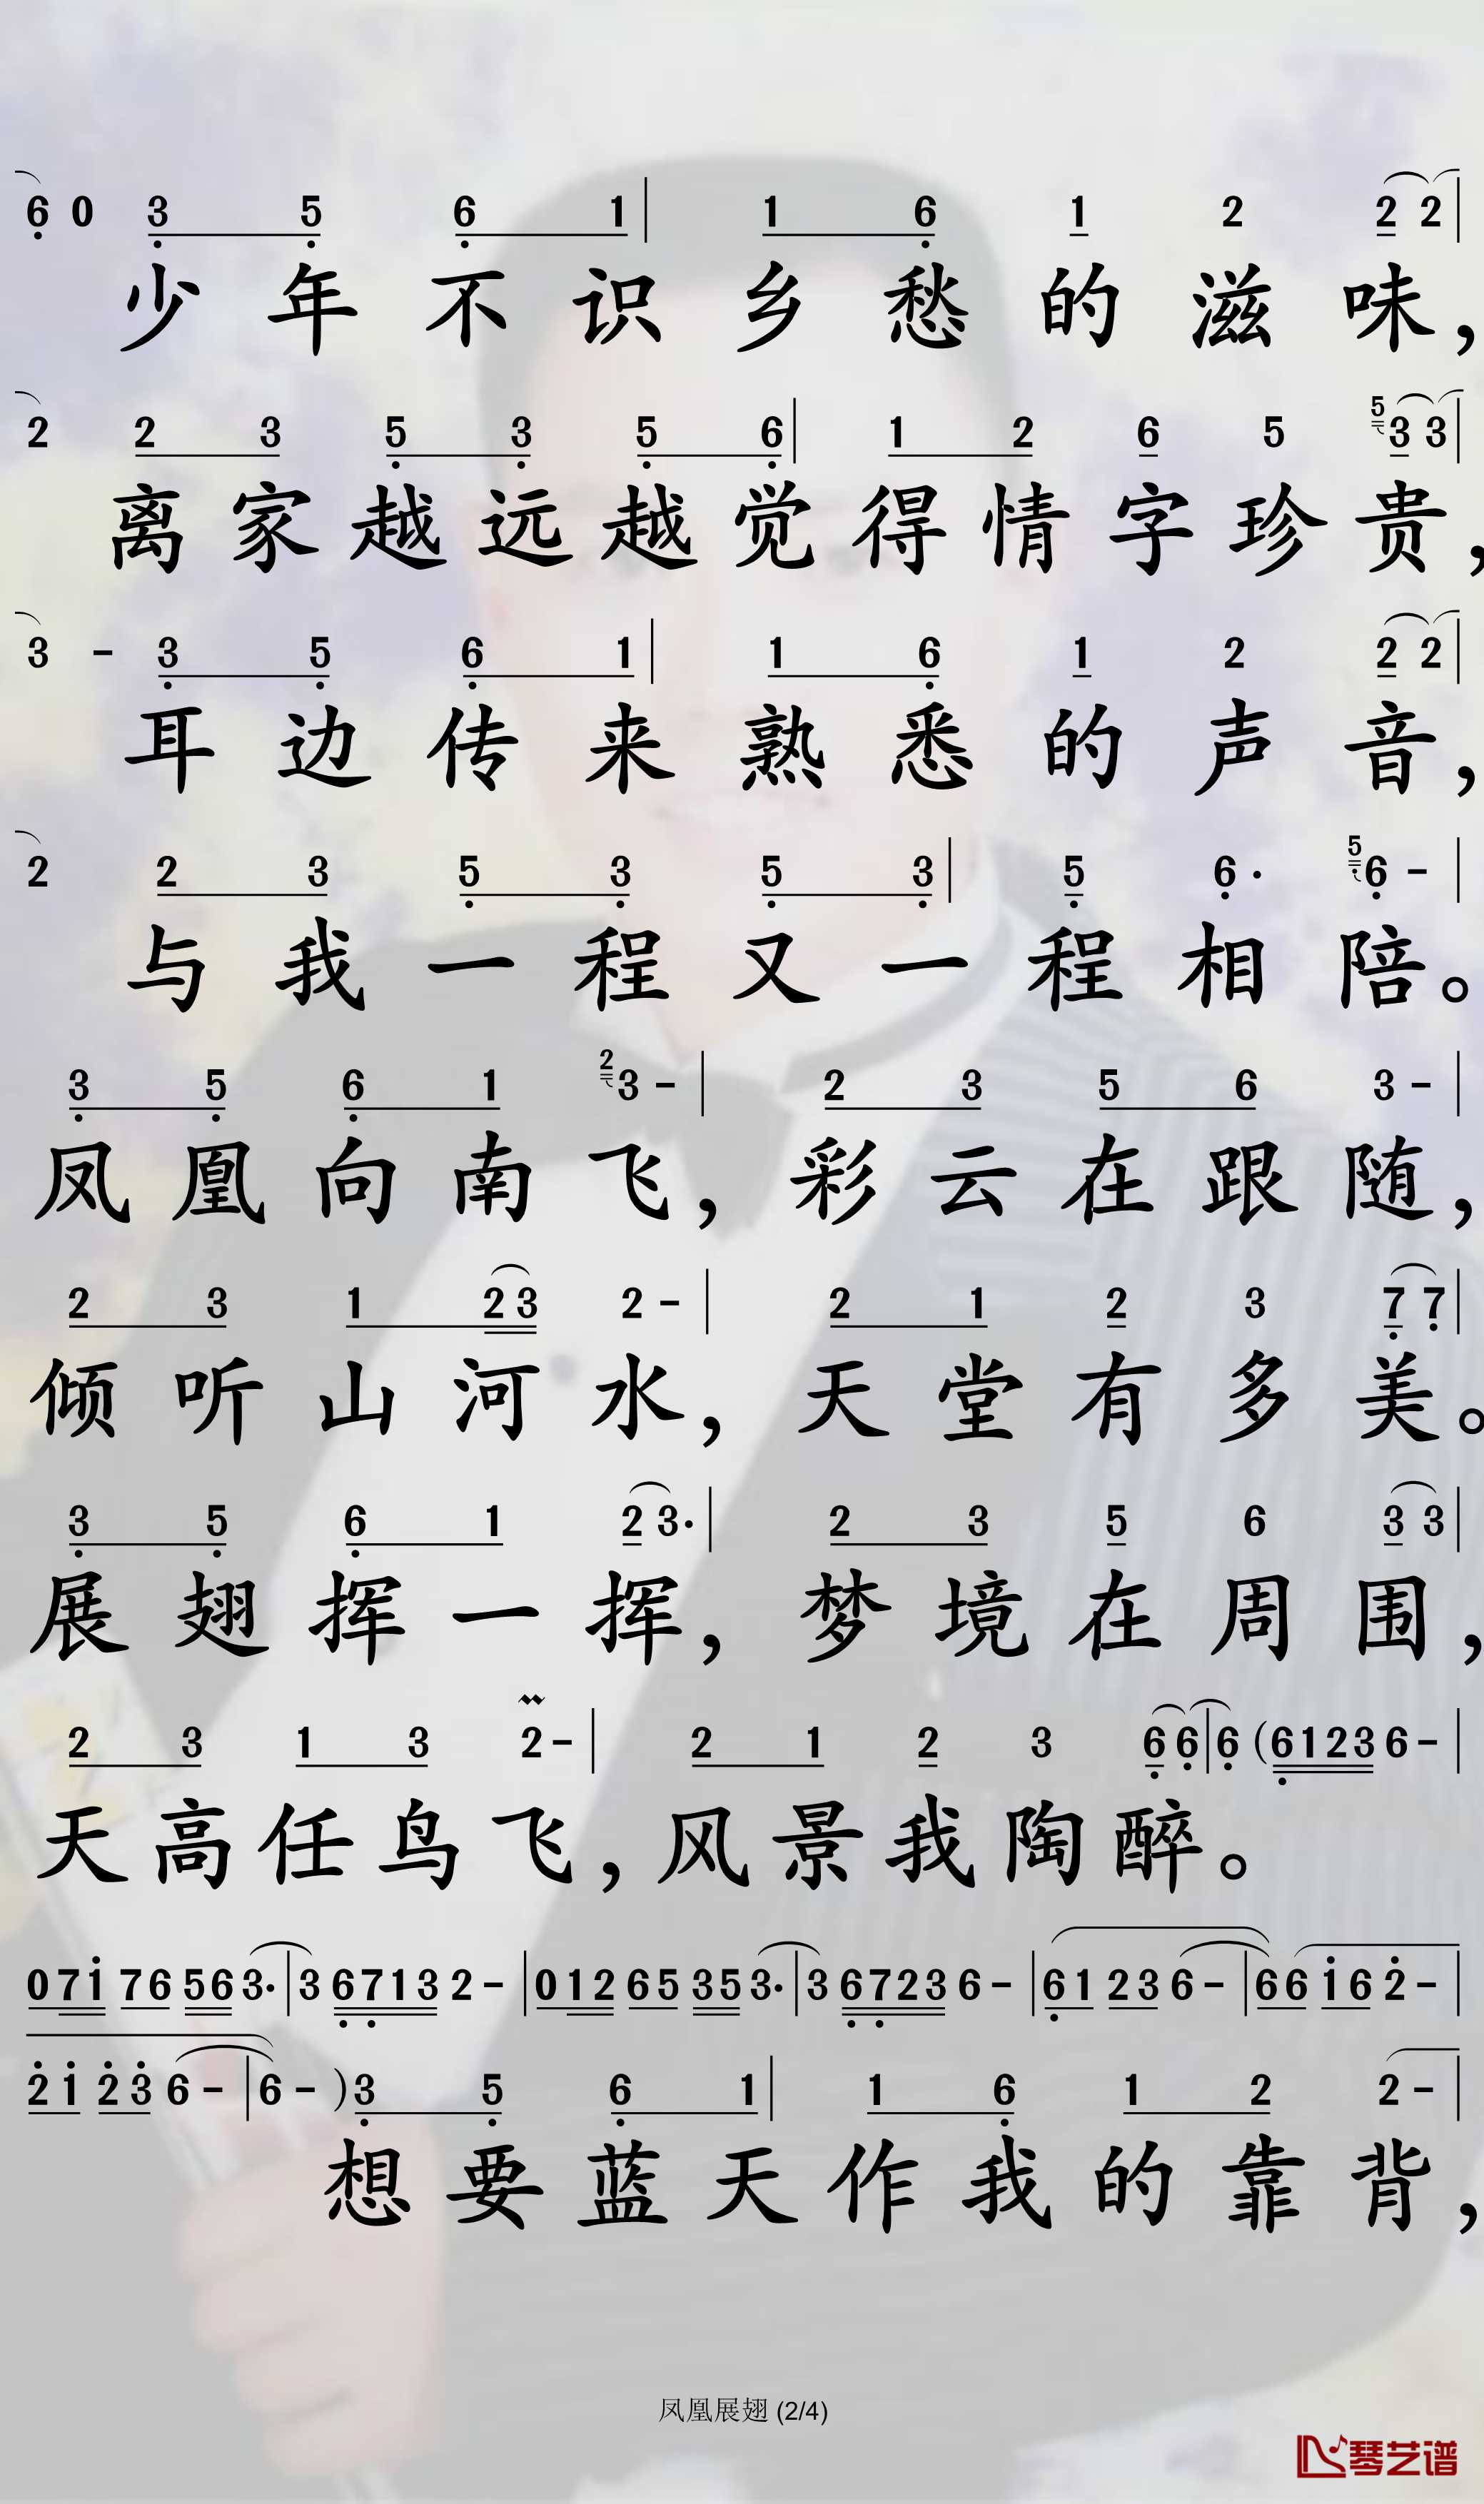 6 0 3 5 6 1 | 1 6 1 2 2 2 |
少年不识乡愁的滋味，
2 2 3 5 3 5 6 | 1 2 6 5 5 3 3 |
离家越远越觉得情字珍贵，
3 - 3 5 6 1 | 1 6 1 2 2 2 |
耳边传来熟悉的声音，
2 2 3 5 3 5 3 | 5 6· 5 6 - |
与我一程又一程相陪。
3 5 6 1 2 3 - | 2 3 5 6 3 - |
凤凰向南飞，彩云在跟随，
2 3 1 2 3 2 - | 2 1 2 3 7 7 |
倾听山河水，天堂有多美。
3 5 6 1 2 3· | 2 3 5 6 3 3 |
展翅挥一挥，梦境在周围，
2 3 1 3 2 - | 2 1 2 3 6 6 | 6 (6 1 2 3 6 - |
天高任鸟飞，风景我陶醉。
0 7 1 7 6 5 6 3· | 3 6 7 1 3 2 - | 0 1 2 6 5 3 5 3· | 3 6 7 2 3 6 - | 6 1 2 3 6 - | 6 6 1 6 2 - |
2 1 2 3 6 - | 6 - ) 3 5 6 1 | 1 6 1 2 2 - |
想要蓝天作我的靠背，
凤凰展翅 (2/4)
琴艺谱